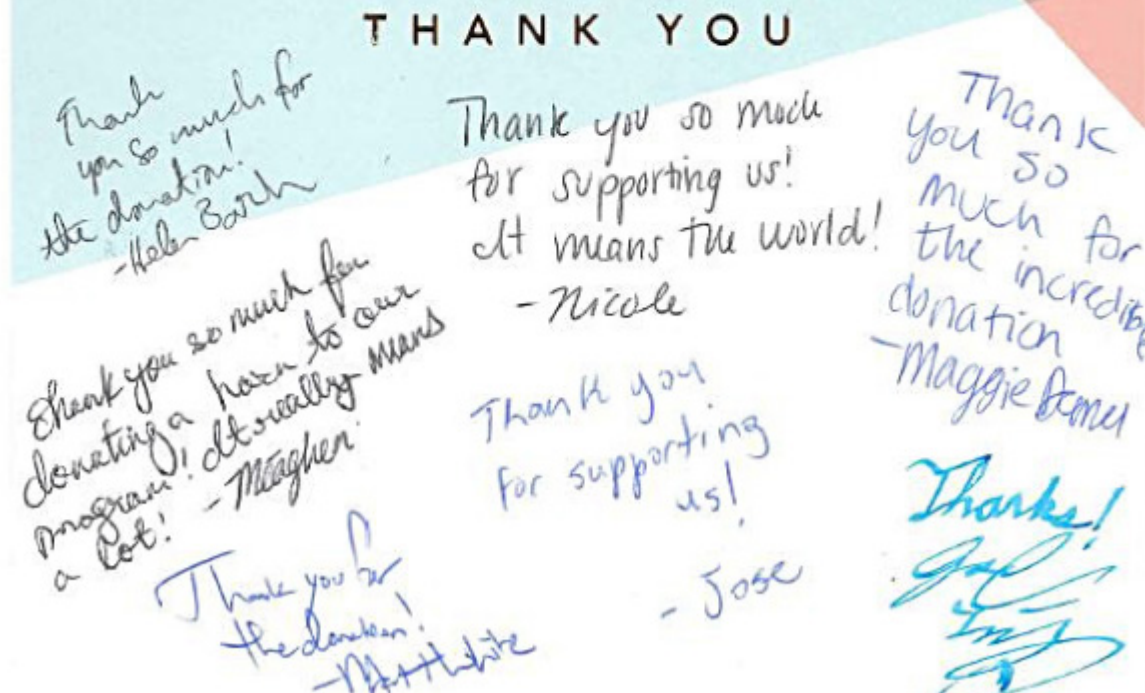 THANK YOU
Thank
you so much for
the donation!
-Helen
Thank you so much
for supporting us!
It means the world!
-Nicole
Thank
you so
much for
the incredible
donation
-Maggie
Thank you so much for
donating a horn to our
program! It really means
a lot! -Meaghen
Thank you
for supporting
us!
- Jose
Thanks!
Thank you for
the donation!
-Matt White